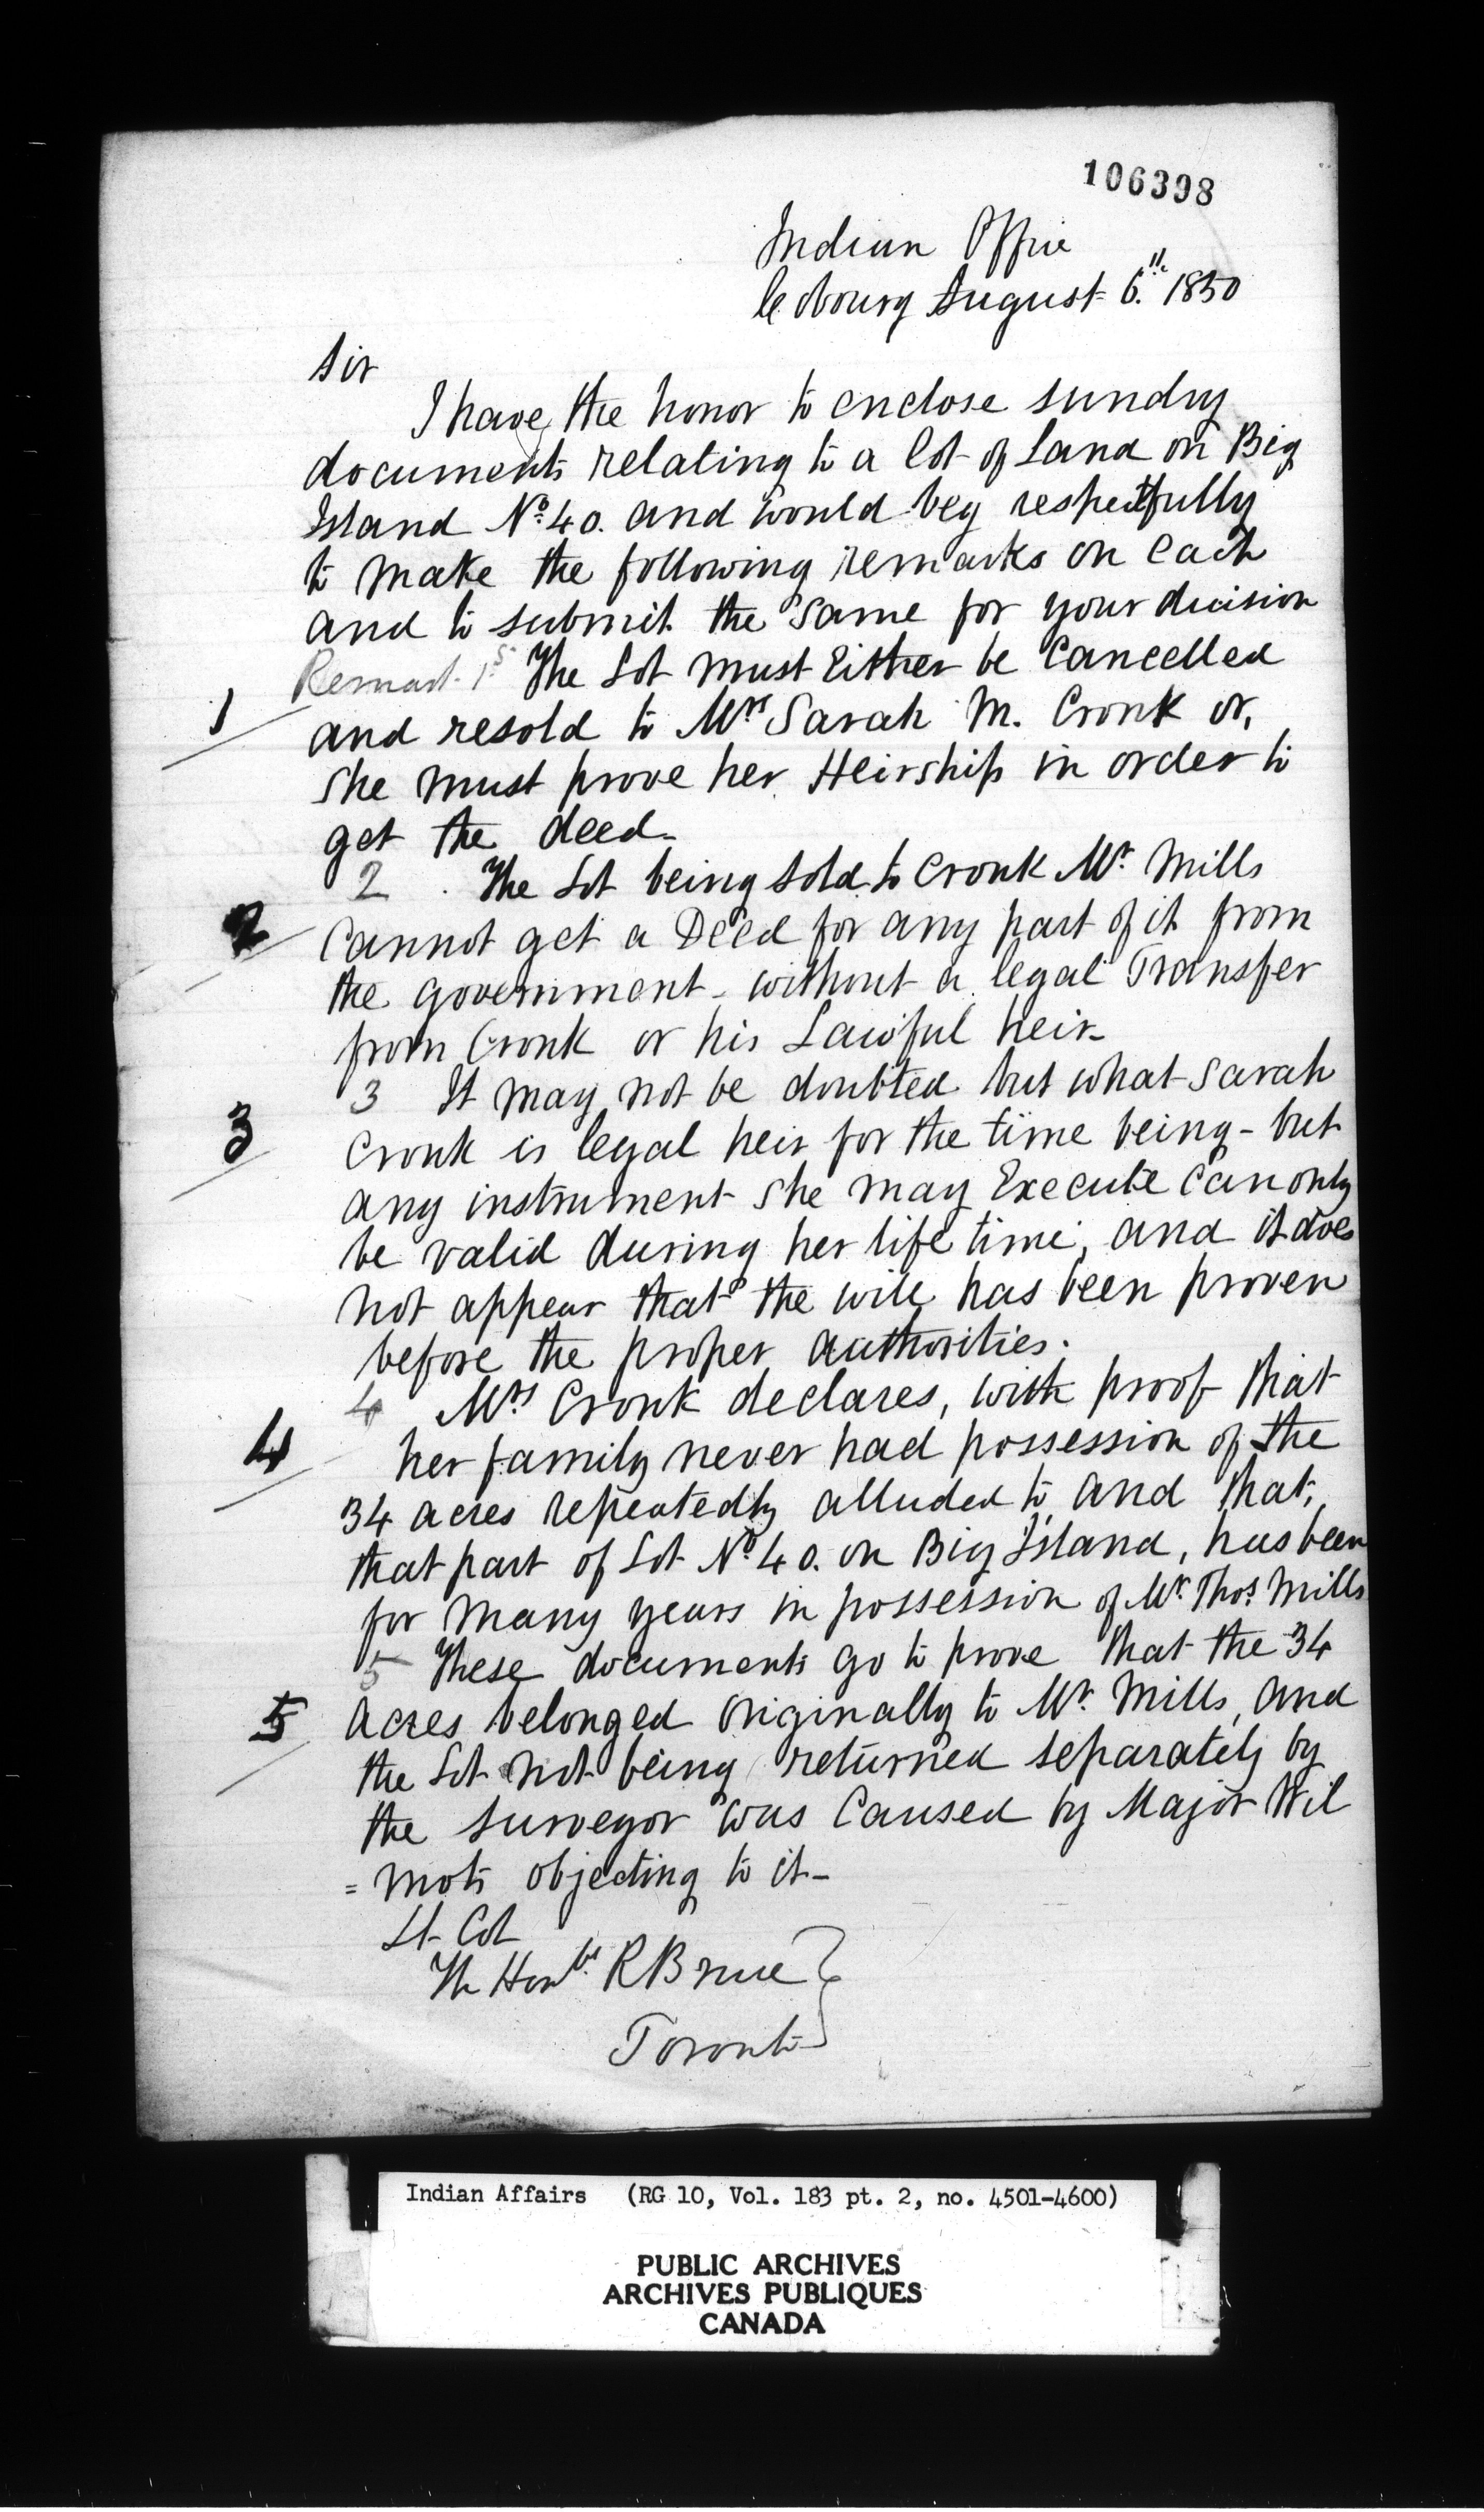 106398
Indian Office
Cobourg August 6.th 1850
Sir
I have the honor to enclose sundry
documents relating to a Lot of Land on Big
Island No. 40. and would beg respectfully
to make the following remarks on each
and to submit the same for your decision
1 Remark 1st The Lot must Either be Cancelled
and resold to Mrs Sarah M. Cronk or,
She must prove her Heirship in order to
get the deed-
2 2 . The Lot being sold to Cronk Mr. Mills
Cannot get a Deed for any part of it from
the government - without a legal Transfer
from Cronk or his Lawful heir-
3 3 It may not be doubted but what Sarah
Cronk is legal heir for the time being - but
any instrument She may Execute Can only
be valid during her life time, and it does
not appear that the will has been proven
before the proper authorities.
4 4 Mrs Cronk declares, with proof that
her family never had possession of the
34 acres repeatedly alluded to, and that,
that part of Lot No. 40. on Big Island, has been
for many years in possession of Mr. Thos. Mills
5 5 These documents go to prove that the 34
acres belonged Originally to Mr. Mills, and
the Lot not being returned separately by
the Surveyor was Caused by Major Wil
= mots objecting to it-
Lt Col
The Honble. R Bruce
Toronto
Indian Affairs (RG 10, Vol. 183 pt. 2, no. 4501-4600)
PUBLIC ARCHIVES
ARCHIVES PUBLIQUES
CANADA